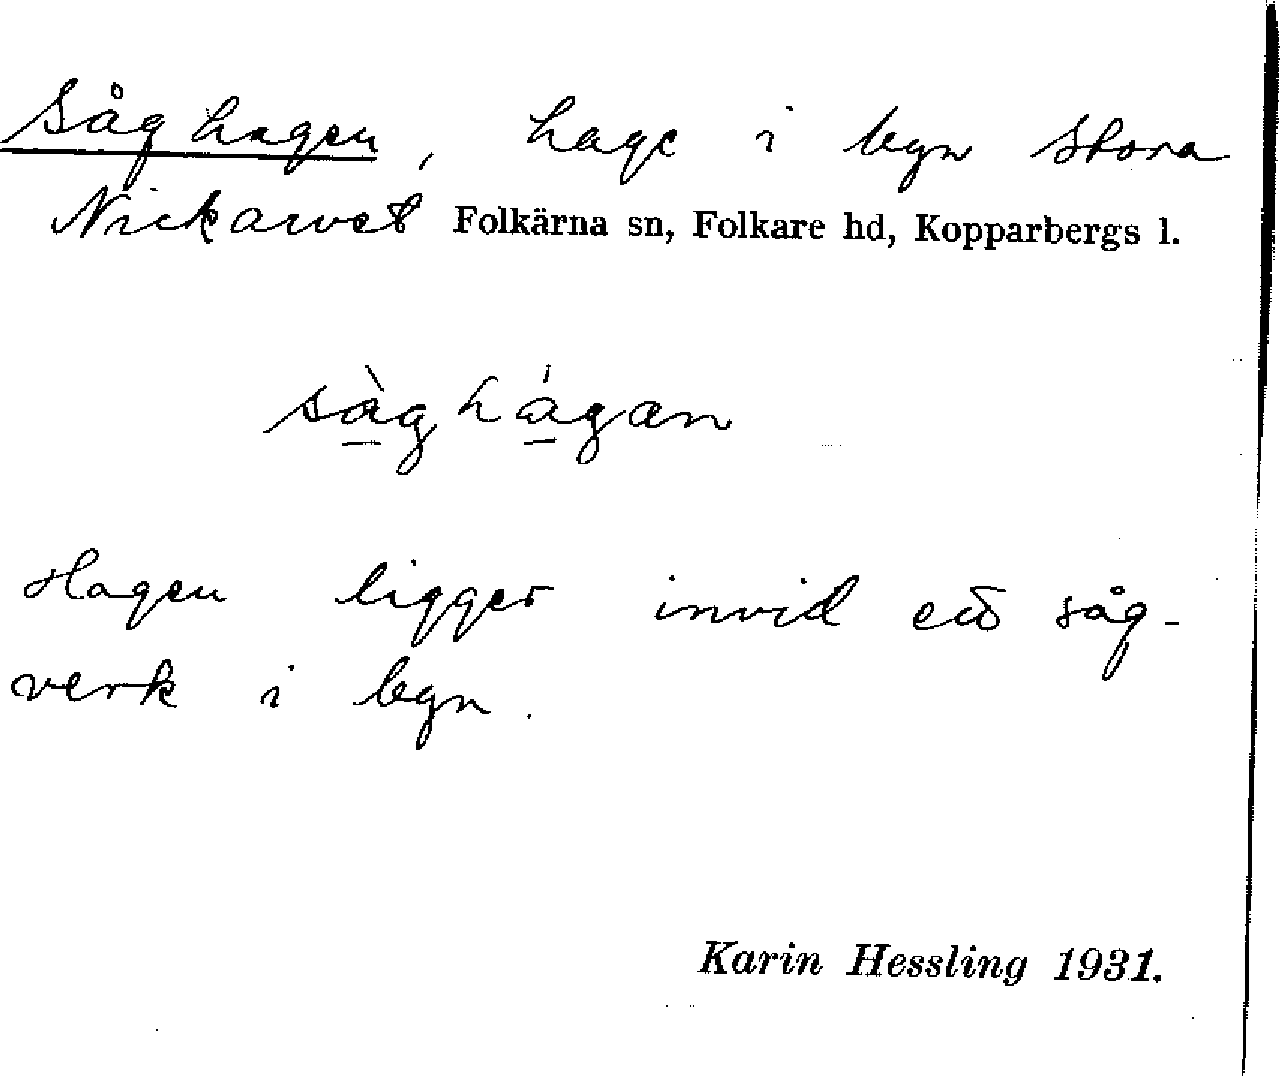 Såghagen, hage i byn Stora
Nickarvet Folkärna sn, Folkare hd, Kopparbergs l.
sàghágan
Hagen ligger invid ett såg-
verk i byn.
Karin Hessling 1931.